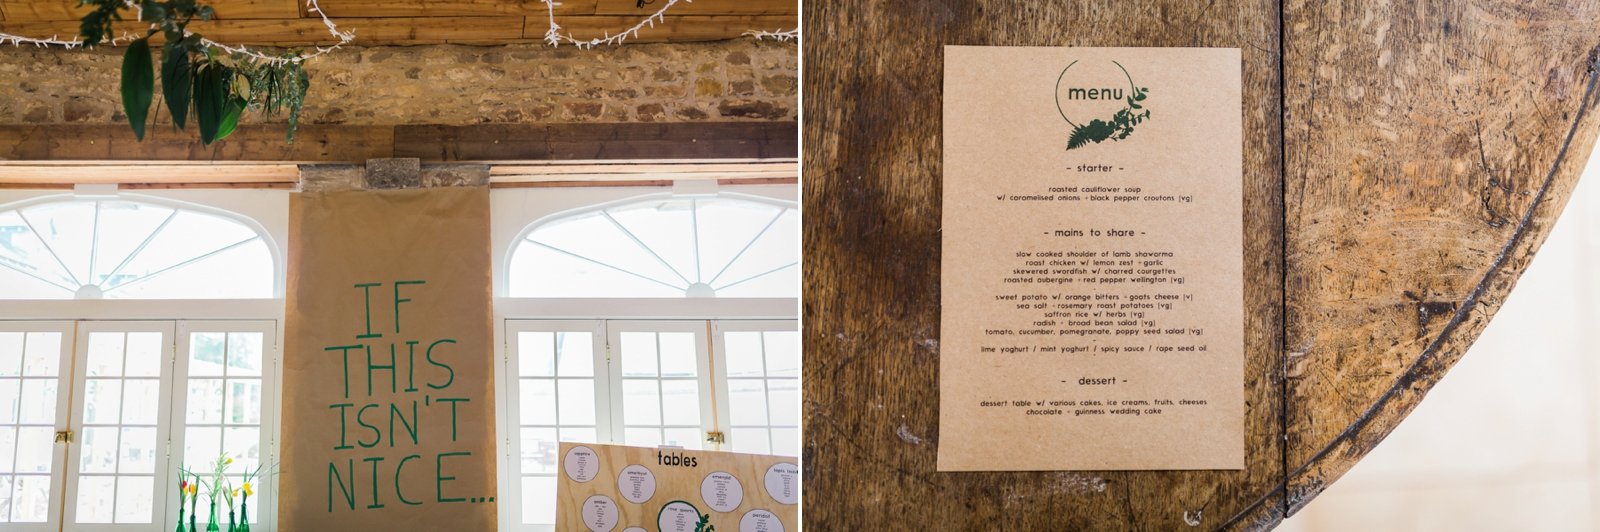 IF
THIS
ISN'T
NICE...
tables
sapphire
amethyst
emerald
amber
rose quartz
peridot
menu
- starter -
roasted cauliflower soup
w/ caramelised onions + black pepper croutons [vg]
- mains to share -
slow cooked shoulder of lamb shawarma
roast chicken w/ lemon zest + garlic
skewered swordfish w/ charred courgettes
roasted aubergine + red pepper wellington [vg]
sweet potato w/ orange bitters + goats cheese [v]
sea salt + rosemary roast potatoes [vg]
saffron rice w/ herbs [vg]
radish + broad bean salad [vg]
tomato, cucumber, pomegranate, poppy seed salad [vg]
lime yoghurt / mint yoghurt / spicy sauce / rape seed oil
- dessert -
dessert table w/ various cakes, ice creams, fruits, cheeses
chocolate + guinness wedding cake